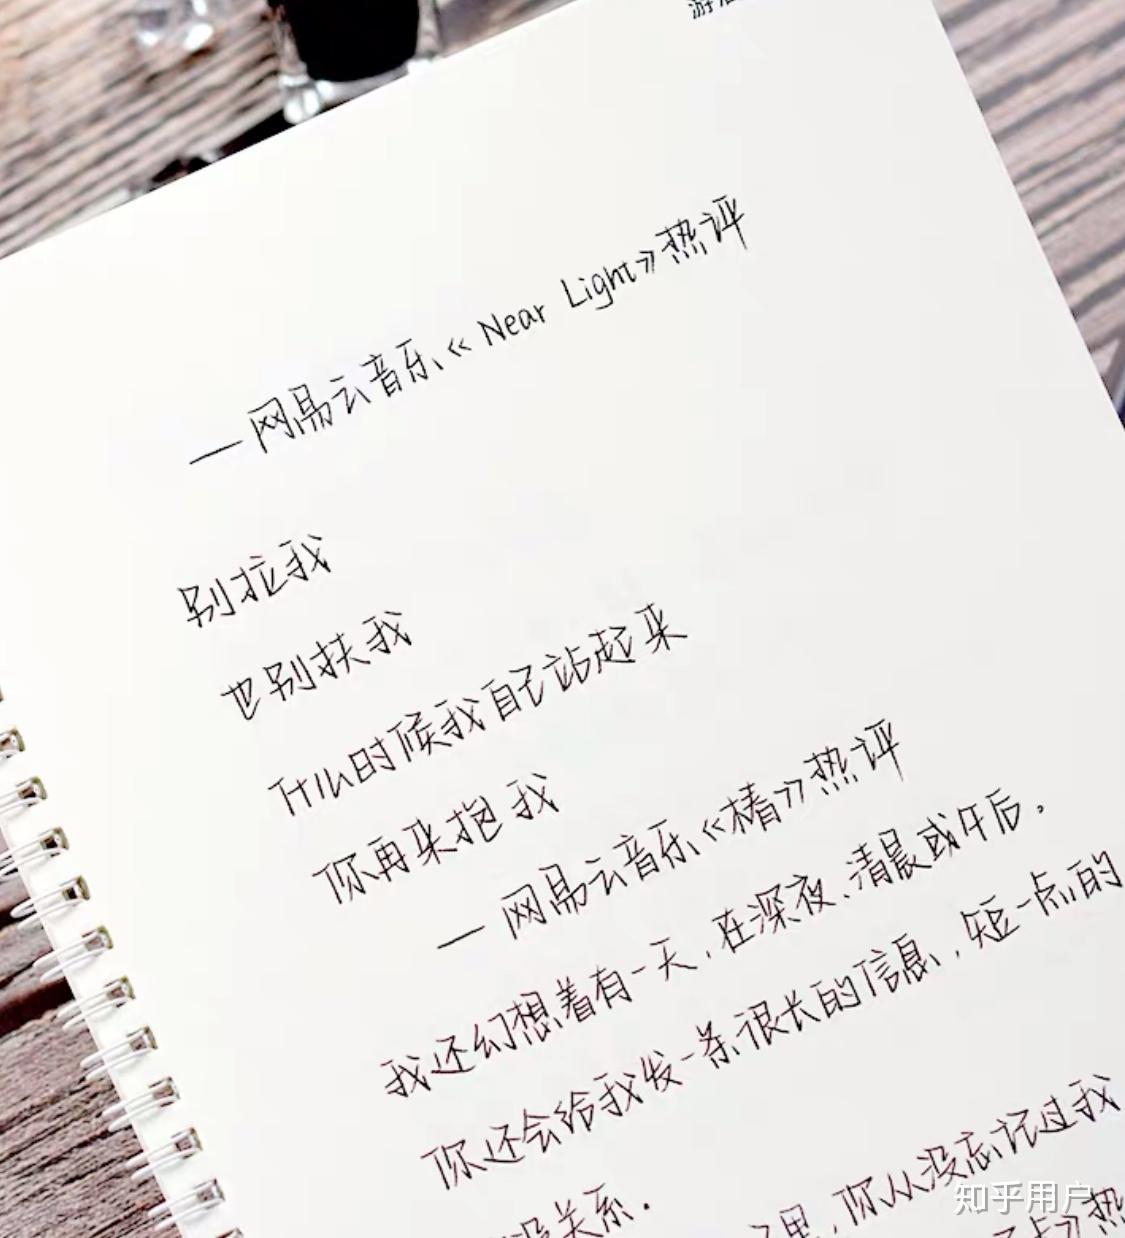 游
——网易云音乐《Near Light》热评
别拉我
也别扶我
什么时候我自己站起来
你再来抱我
——网易云音乐《椿》热评
我还幻想着有一天，在深夜、清晨或午后，
你还会给我发一条很长的信息，短一点的
没关系.
里，你从没忘记过我
热
知乎用户